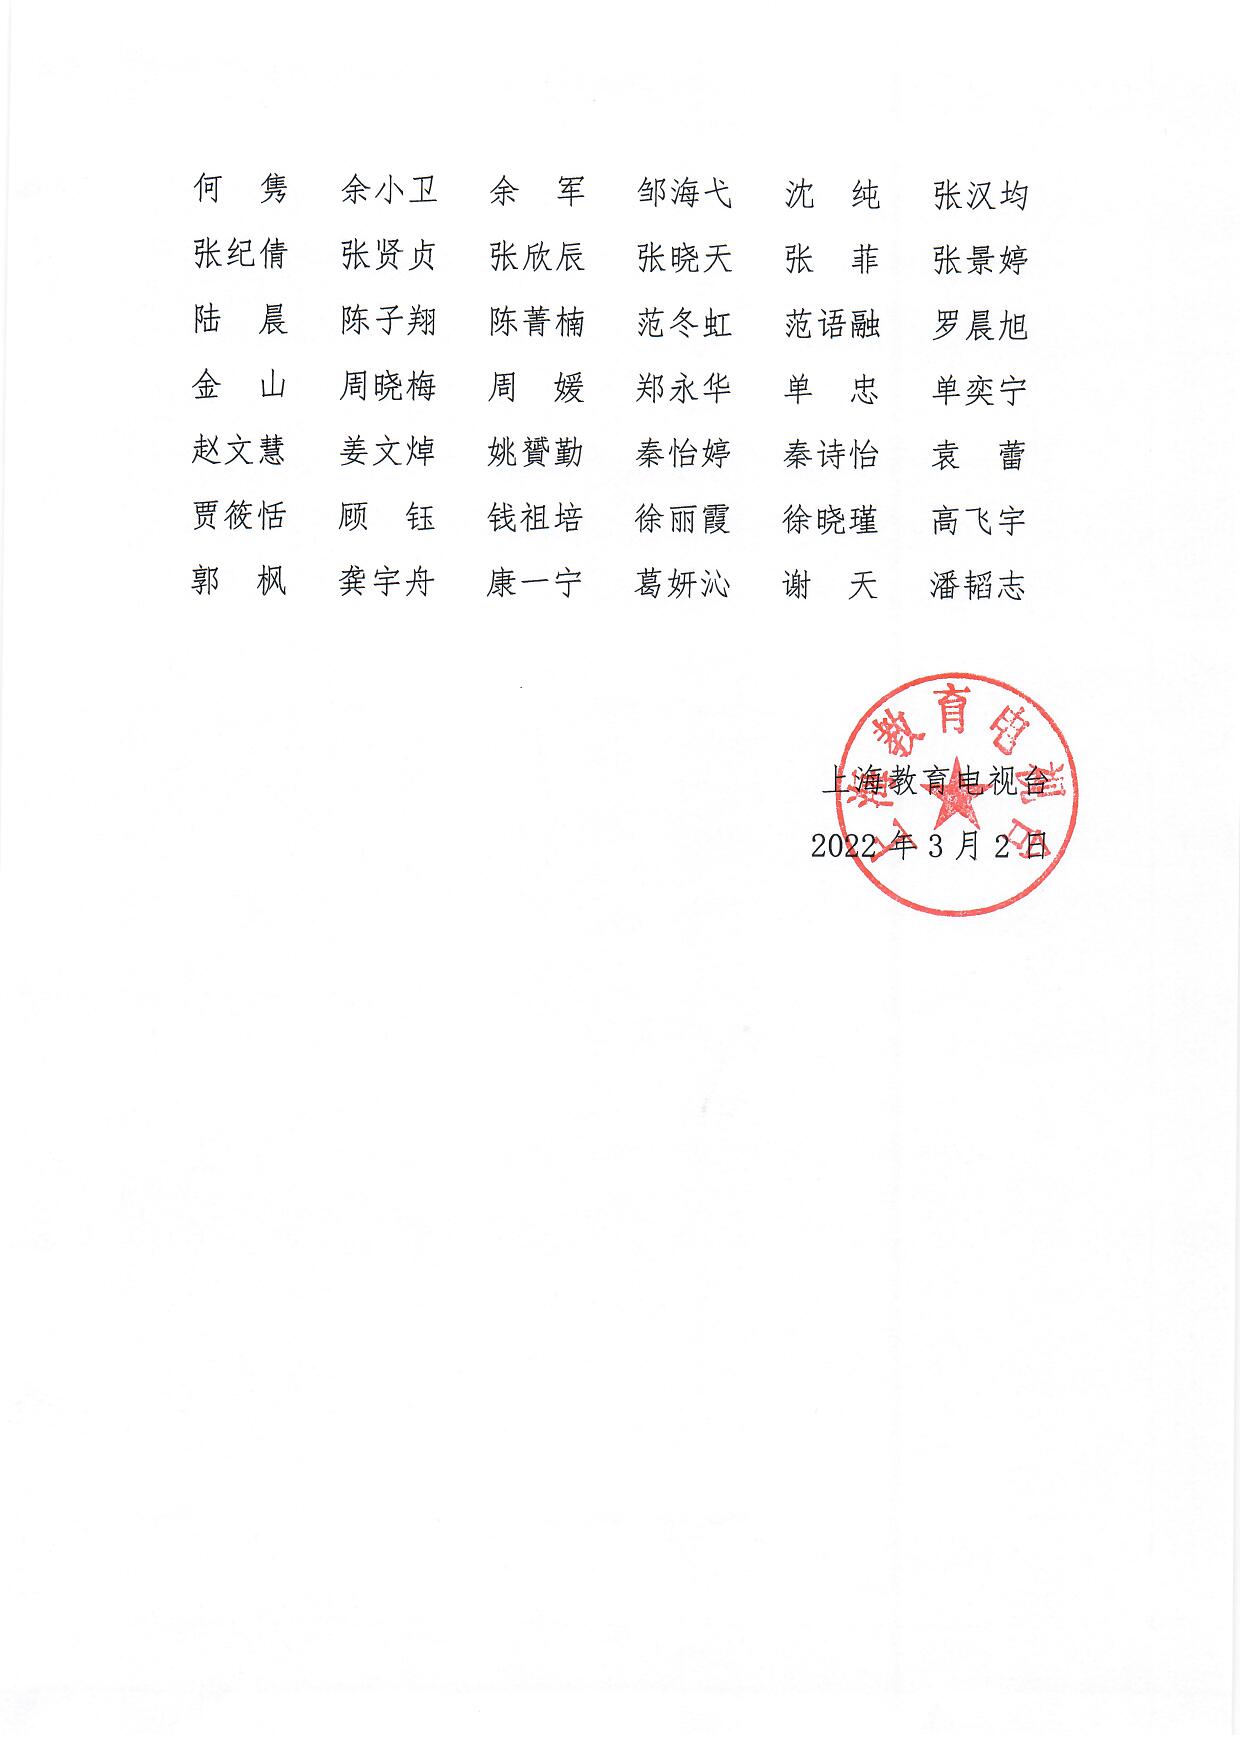 何　隽　余小卫　余　军　邹海弋　沈　纯　张汉均
张纪倩　张贤贞　张欣辰　张晓天　张　菲　张景婷
陆　晨　陈子翔　陈菁楠　范冬虹　范语融　罗晨旭
金　山　周晓梅　周　媛　郑永华　单　忠　单奕宁
赵文慧　姜文焯　姚赟勤　秦怡婷　秦诗怡　袁　蕾
贾筱恬　顾　钰　钱祖培　徐丽霞　徐晓瑾　高飞宇
郭　枫　龚宇舟　康一宁　葛妍沁　谢　天　潘韬志
上海教育电视台
上海教育电视台
2022年3月2日